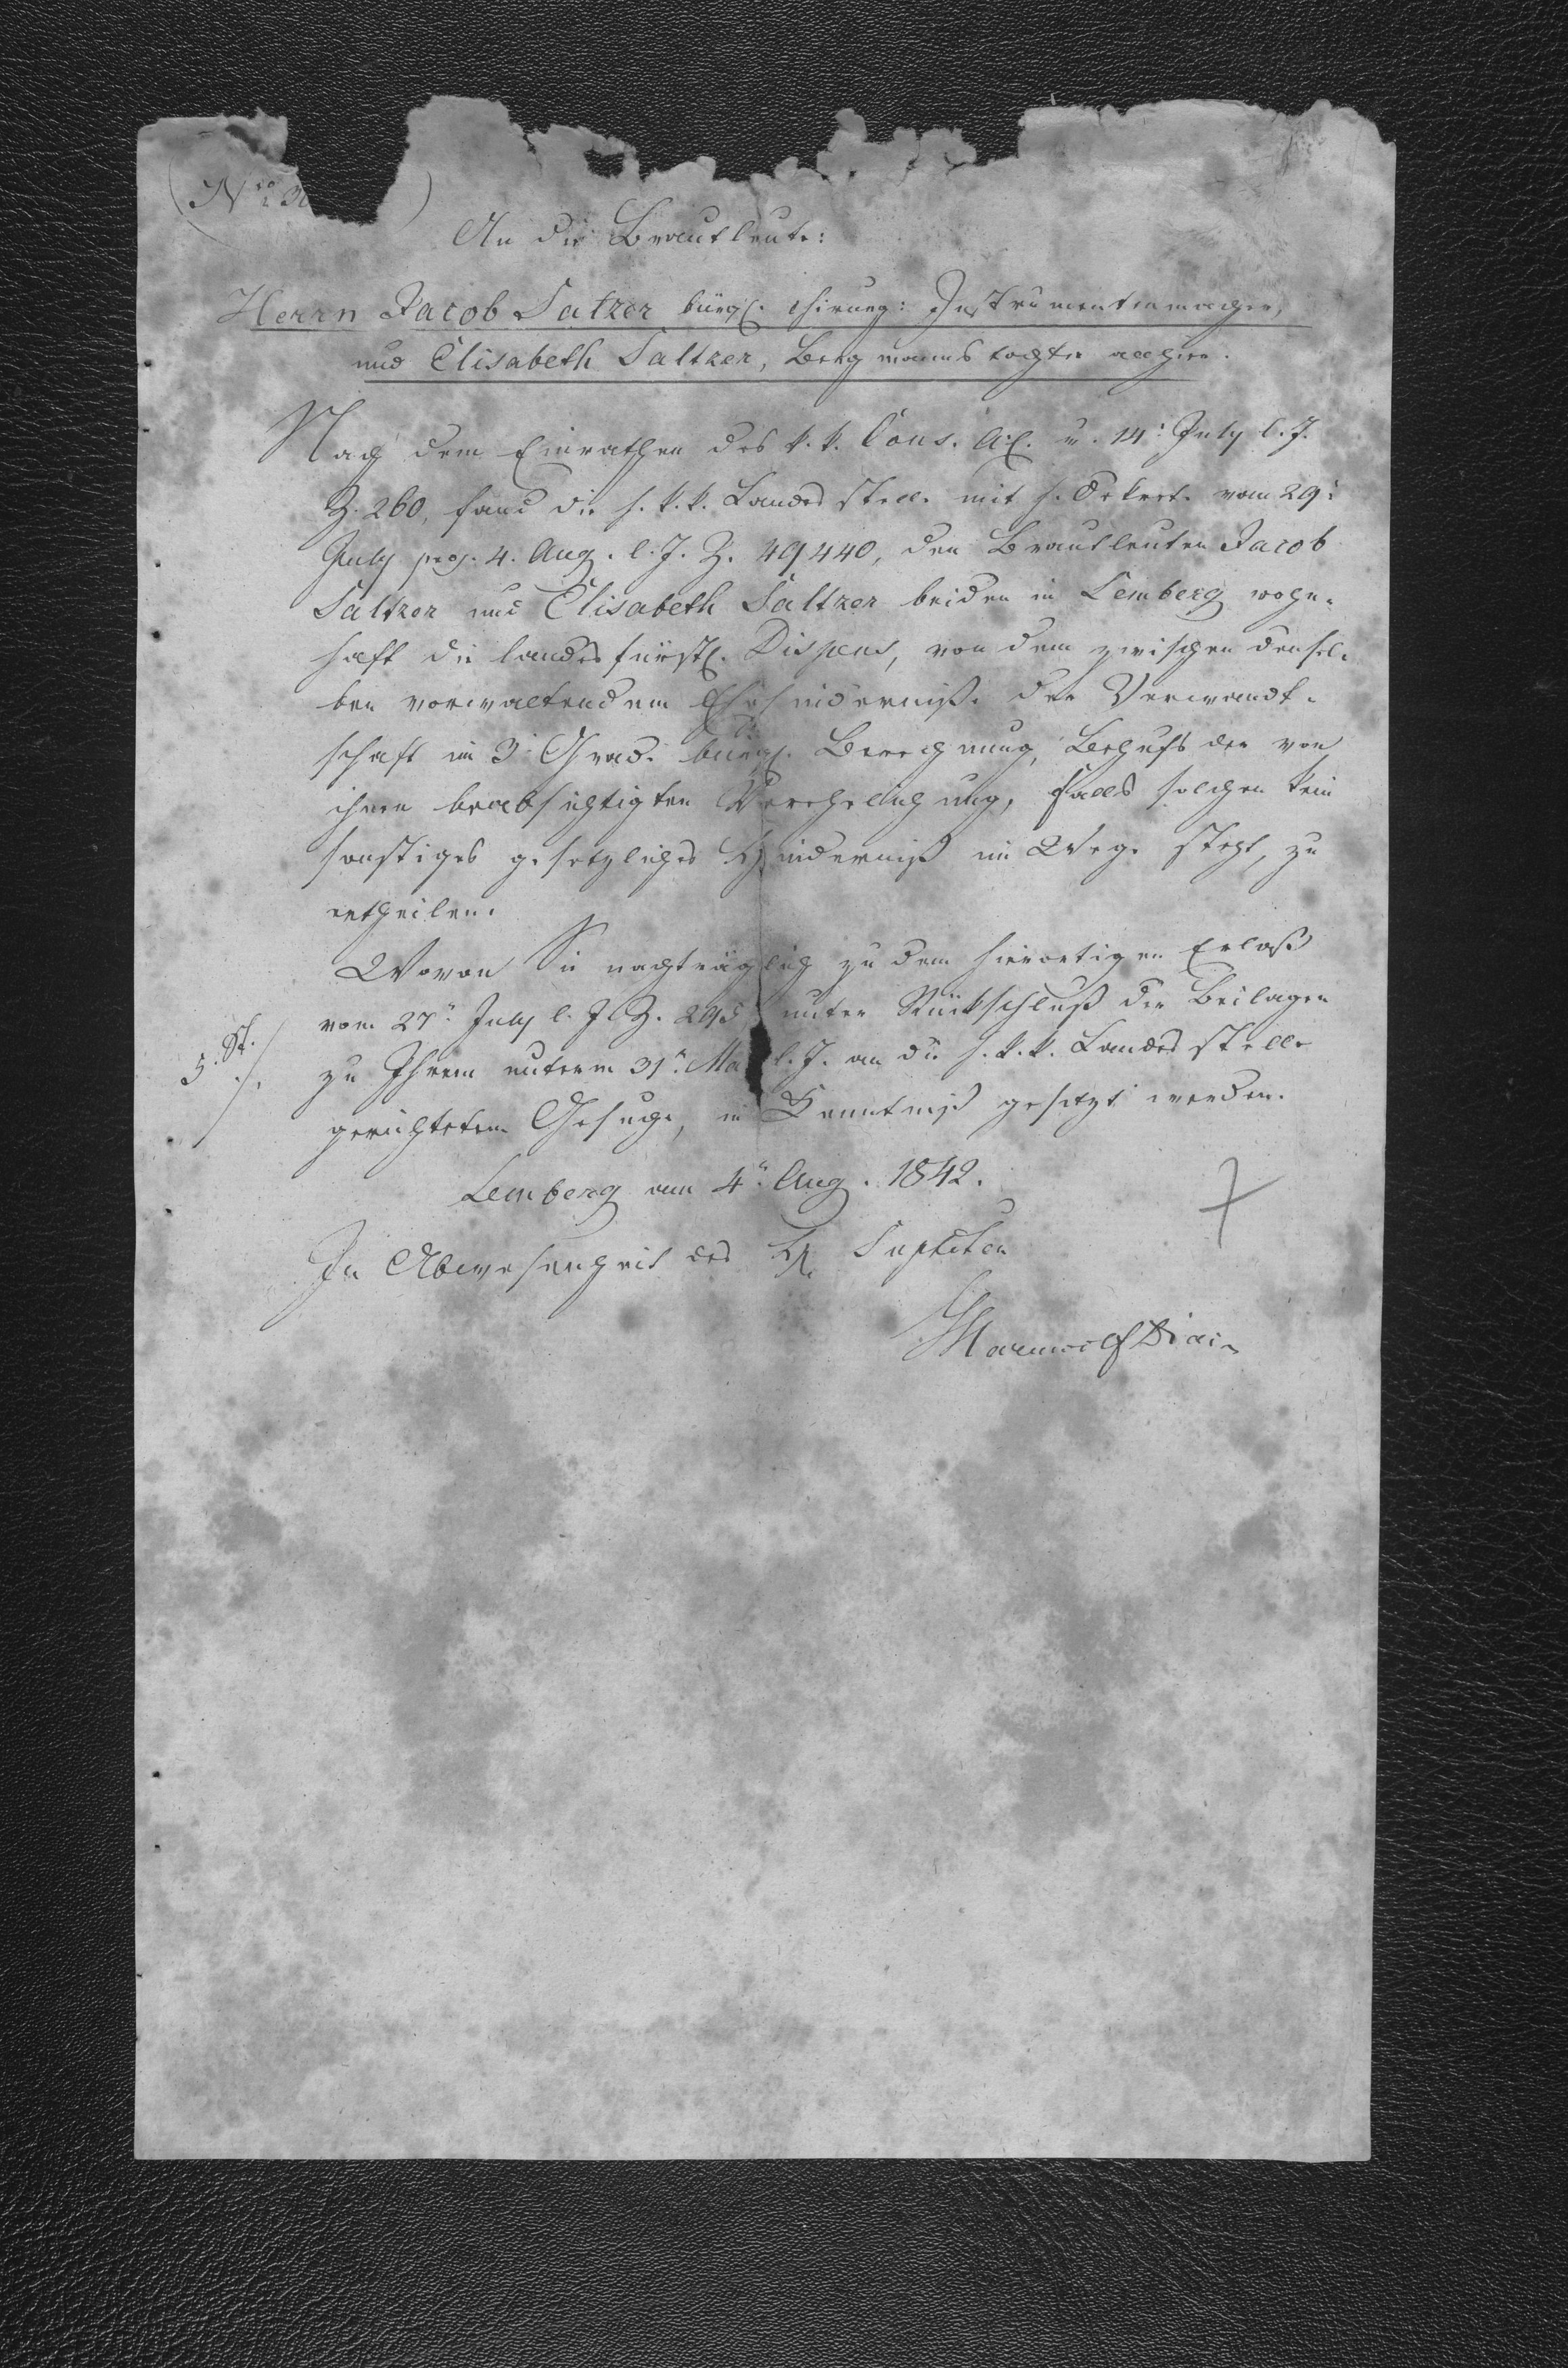 Nro 30
An die Brautleute:
Herrn Jacob Saltzer bürgl. chirurg: Instrumentenmacher,
und Elisabeth Saltzer, Bergmannstochter allhier.
Nach dem Einrathen des k. k. Cons. A. C. v. 14: July l. J.
Z. 260, fand die h. k. k. Landesstelle mit h. Dekrete vom 29:
July 4. Aug. l. J. Z. 49440, den Brautleuten Jacob
Saltzer und Elisabeth Saltzer beiden in Lemberg wohn-
haft die landesfürstl. Dispens, von dem zwischen densel-
ben vorwaltendem Ehehinderniße der Verwandt-
schaft im 3: Grade bürgl. Berechnung, Behufs der von
ihnen beabsichtigten Verehelichung, falls solchen kein
sonstiges gesetzliches Hinderniß im Wege steht, zu
ertheilen.
Wovon Sie nachträglich zu dem hierortigen Erlaß
vom 27: July l. J. Z. unter Rückschluß der Beilagen
5 St. ./. zu Ihrem unterm 31: Ma l. J. an die h. k. k. Landesstelle
gerichteten Gesuche, in Kenntniß gesetzt werden.
Lemberg am 4: Aug. 1842.
In Abwesenheit des H.